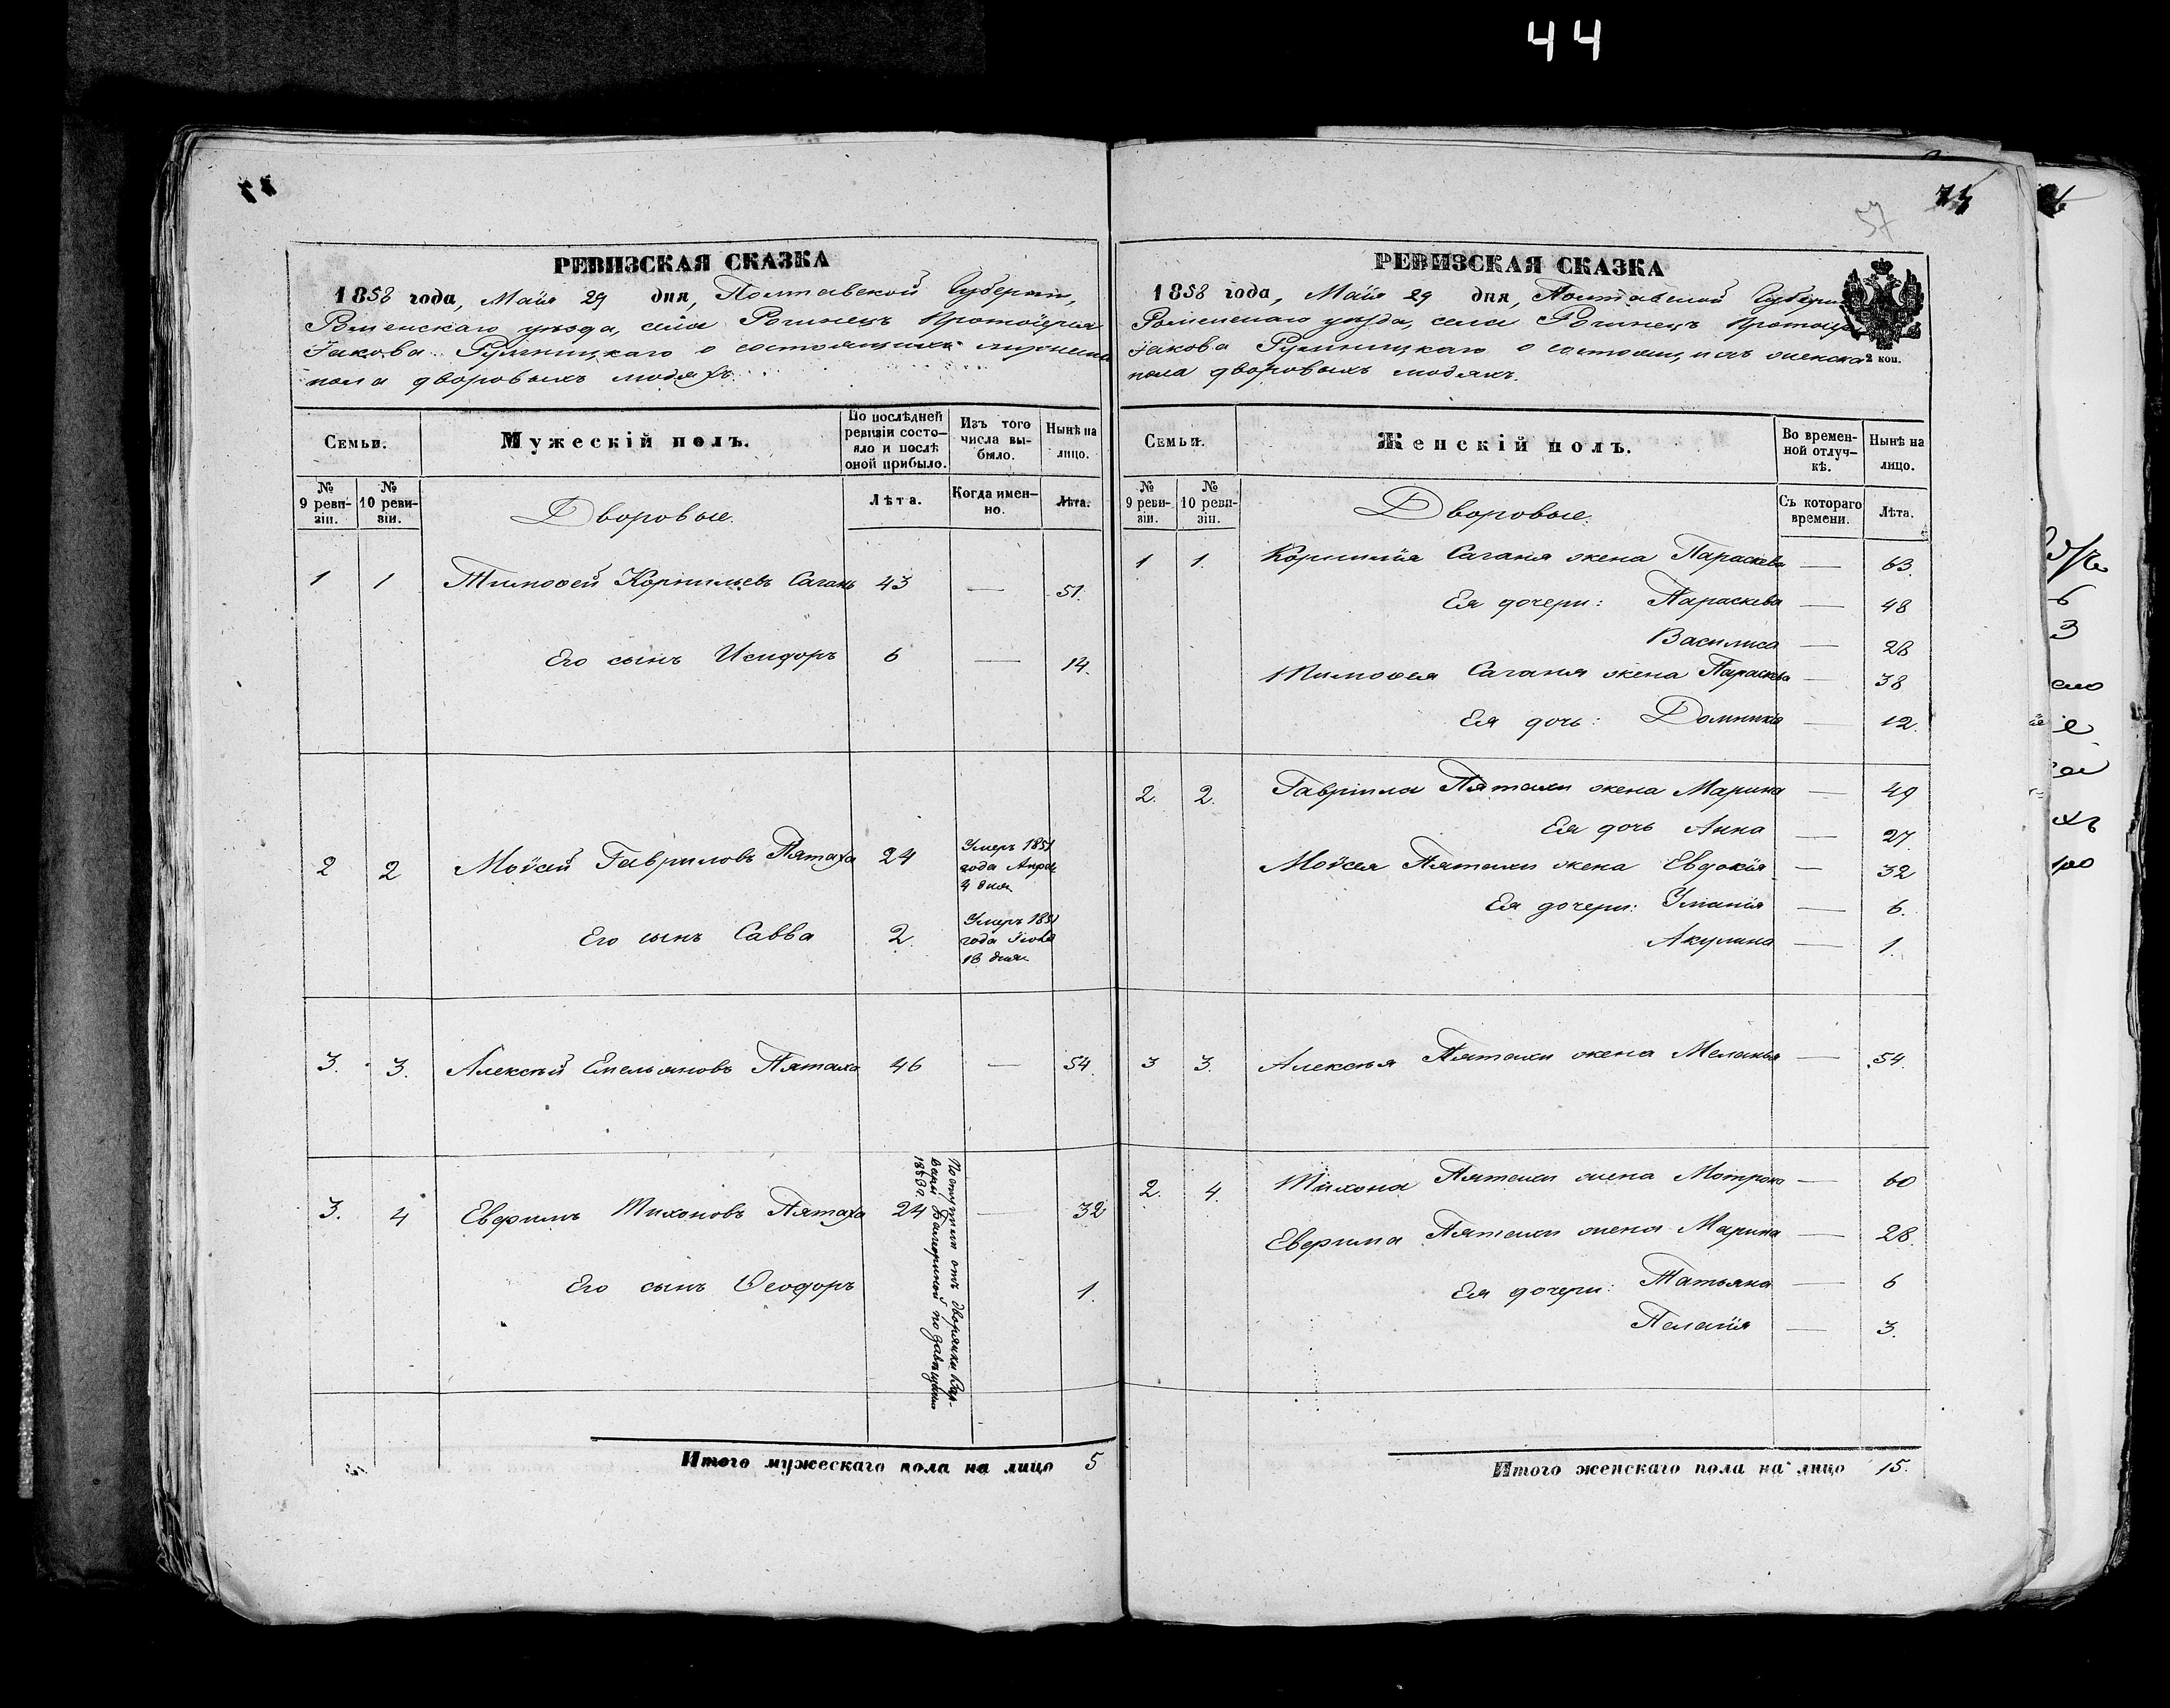 44
РЕВИЗСКАЯ СКАЗКА
1858 года, Маія 29 дня, Полтавской Губерніи,
Роменскаго уѣзда, села Рогинецъ Протоіерея
Іакова о состоящихъ мужеска
пола дворовыхъ людяхъ.
Семьи.
Мужескій полъ.
По послѣдней ревизіи состояло и послѣ оной прибыло.
Изъ того числа выбыло.
Нынѣ на лицо.
№ 9 ревизіи.
№ 10 ревизіи.
Дворовые.
Лѣта.
Когда именно.
Лѣта.
1 1 Тимоѳей Корнильевъ Сагань 43 — 51.
Его сынъ Исидоръ 6 — 14.
2 2 Мойсей Гавриловъ Пятаха 24 Умеръ 1851
года Апрѣля
4 дня
Его сынъ Савва 2. Умеръ 1851
года Іюня
18 дня
3. 3. Алексѣй Емельяновъ Пятаха 46 — 54.
3. 4 Евфимъ Тихоновъ Пятаха 24 — 32
Его сынъ Ѳеодоръ 1.
Поступили отъ дворянки Вар-
вары по завѣщанію
Итого мужескаго пола на лицо 5
57
РЕВИЗСКАЯ СКАЗКА
1858 года, Маія 29 дня, Полтавской Губерніи
Роменскаго уѣзда, села Рогинецъ Протоіерея
Іакова о состоящихъ женска
пола дворовыхъ людяхъ.
2 коп.
Семьи.
Женскій полъ.
Во временной отлучкѣ.
Нынѣ на лицо.
№ 9 ревизіи.
№ 10 ревизіи.
Дворовые.
Съ котораго времени.
Лѣта.
1 1. Корнилія Саганя жена Параскева — 63.
Ея дочери: Параскева — 48
Василиса — 28
Тимоѳея Саганя жена Параскева — 38
Ея дочь: Домникія — 12.
2. 2. Гавріила Пятахи жена Марина — 49
Ея дочь Анна — 27.
Мойсея Пятахи жена Евдокія — 32
Ея дочери: Уліанія — 6.
Акулина — 1.
3 3. Алексѣя Пятахи жена Меланья — 54.
2. 4. Тихона Пятахи жена Мотрона — 60
Евфима Пятахи жена Марина — 28.
Ея дочери: Татьяна — 6
Пелагія — 3.
Итого женскаго пола на лицо 15.